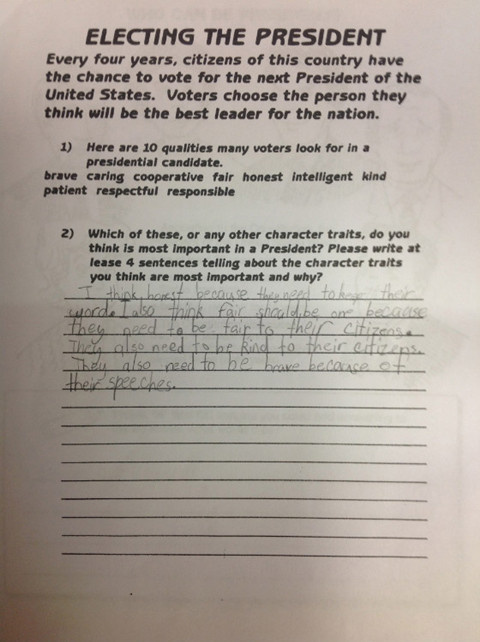 ELECTING THE PRESIDENT
Every four years, citizens of this country have
the chance to vote for the next President of the
United States. Voters choose the person they
think will be the best leader for the nation.
1) Here are 10 qualities many voters look for in a
presidential candidate.
brave caring cooperative fair honest intelligent kind
patient respectful responsible
2) Which of these, or any other character traits, do you
think is most important in a President? Please write at
lease 4 sentences telling about the character traits
you think are most important and why?
I think honest because they need to keep their
word. I also think fair should be one because
they need to be fair to their citizens.
They also need to be kind to their citizens.
They also need to be brave because of
their speeches.